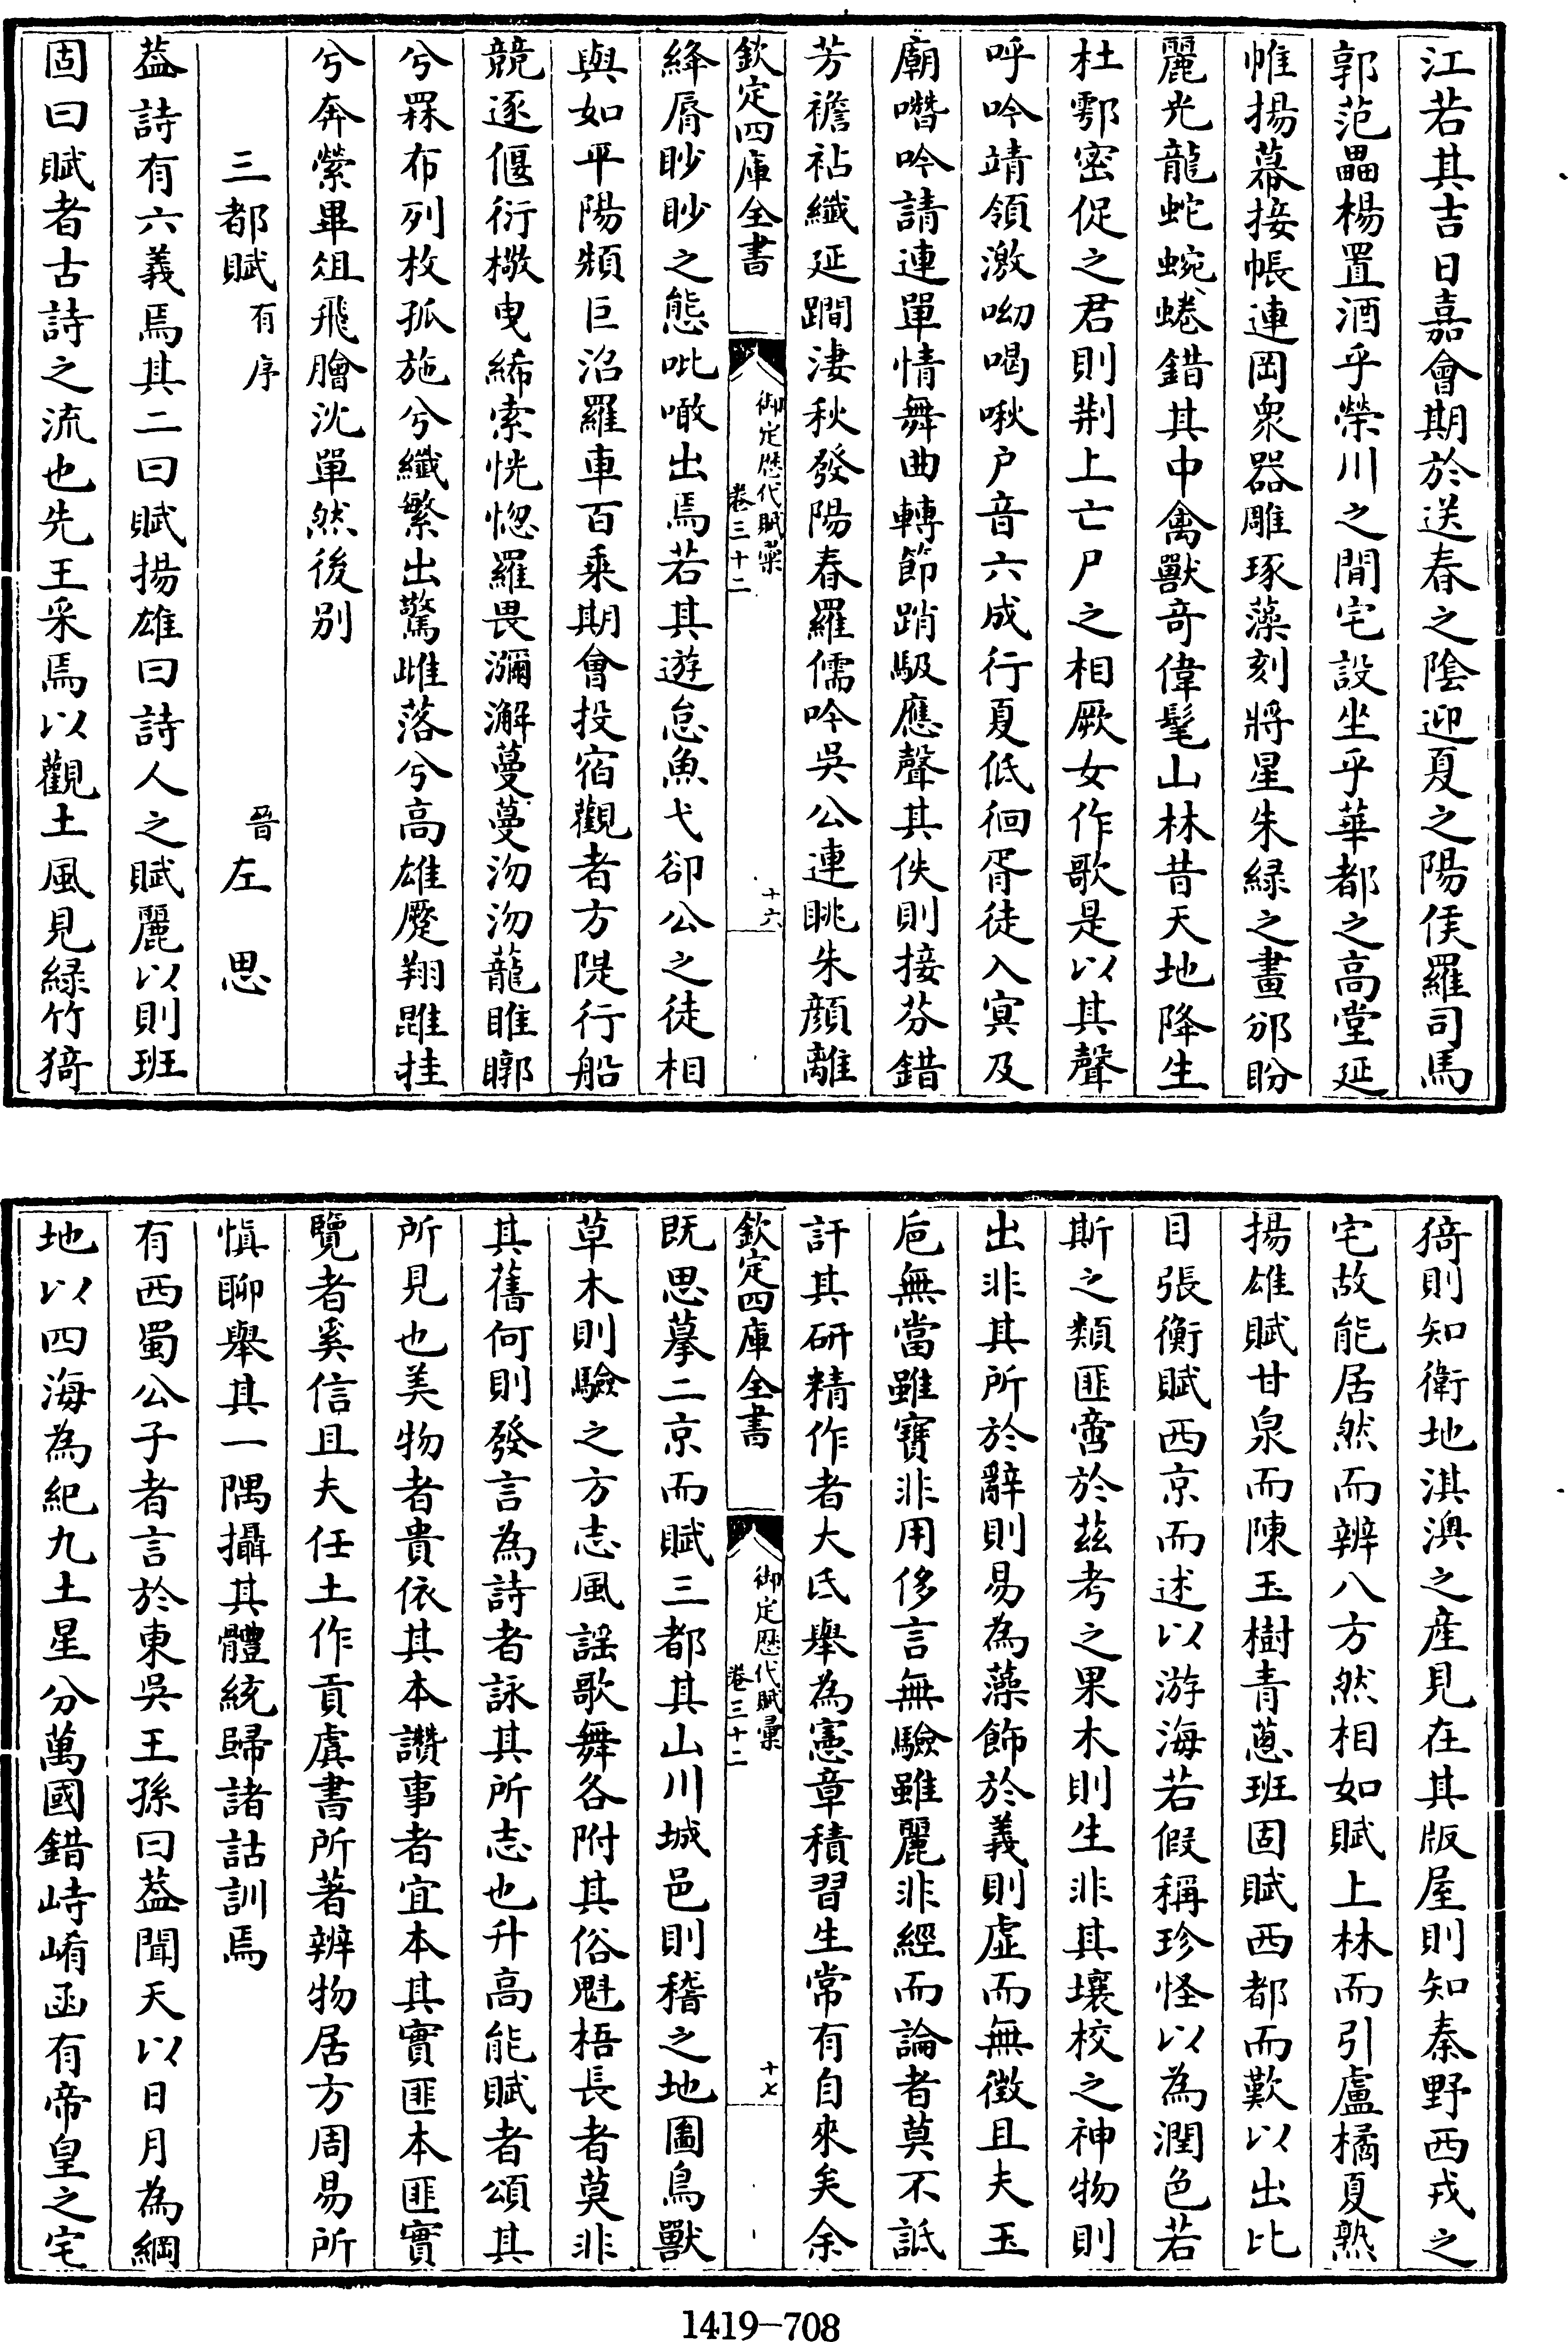 江若其吉日嘉會期於送春之陰迎夏之陽侯羅司馬
郭范畾楊置酒乎榮川之閒宅設坐乎華都之高堂延
帷揚幕接帳連岡衆器雕琢藻刻將星朱緑之畫邠盼
麗光龍蛇蜿蜷錯其中禽獸奇偉髦山林昔天地降生
杜鄠密促之君則荆上亡尸之相厥女作歌是以其聲
呼吟靖領激呦喝啾户音六成行夏低徊胥徒入冥及
廟噆吟請連單情舞曲轉節踃馺應聲其佚則接芬錯
芳襜袩纖延躧淒秋發陽春羅儒吟吳公連眺朱顔離
欽定四庫全書
御定歴代賦彙
卷三十二
十六
絳脣眇眇之態吡噉出焉若其遊怠魚弋卻公之徒相
與如平陽頮巨沼羅車百乘期會投宿觀者方隄行船
競逐偃衍橵曳絺索恍惚羅畏瀰澥蔓蔓沕沕蘢睢㬑
兮罧布列枚孤施兮纖繁出驚雌落兮高雄蹷翔䧳挂
兮奔縈畢俎飛膾沈單然後别
三都賦有序 晉左思
葢詩有六義焉其二曰賦揚雄曰詩人之賦麗以則班
固曰賦者古詩之流也先王采焉以觀土風見緑竹猗
猗則知衛地淇澳之産見在其版屋則知秦野西戎之
宅故能居然而辨八方然相如賦上林而引盧橘夏熟
揚雄賦甘泉而陳玉樹青蔥班固賦西都而歎以出比
目張衡賦西京而述以游海若假稱珍怪以為潤色若
斯之類匪啻於茲考之果木則生非其壤校之神物則
出非其所於辭則易為藻飾於義則虛而無徵且夫玉
巵無當雖寶非用侈言無驗雖麗非經而論者莫不詆
訐其研精作者大氐舉為憲章積習生常有自來矣余
欽定四庫全書
御定歴代賦彙
卷三十二
十七
既思摹二京而賦三都其山川城邑則稽之地圖鳥獸
草木則驗之方志風謡歌舞各附其俗魁梧長者莫非
其舊何則發言為詩者詠其所志也升高能賦者頌其
所見也美物者貴依其本讚事者宜本其實匪本匪實
覽者奚信且夫任土作貢虞書所著辨物居方周易所
慎聊舉其一隅攝其體統歸諸詁訓焉
有西蜀公子者言於東吳王孫曰葢聞天以日月為綱
地以四海為紀九土星分萬國錯峙崤函有帝皇之宅
1419-708